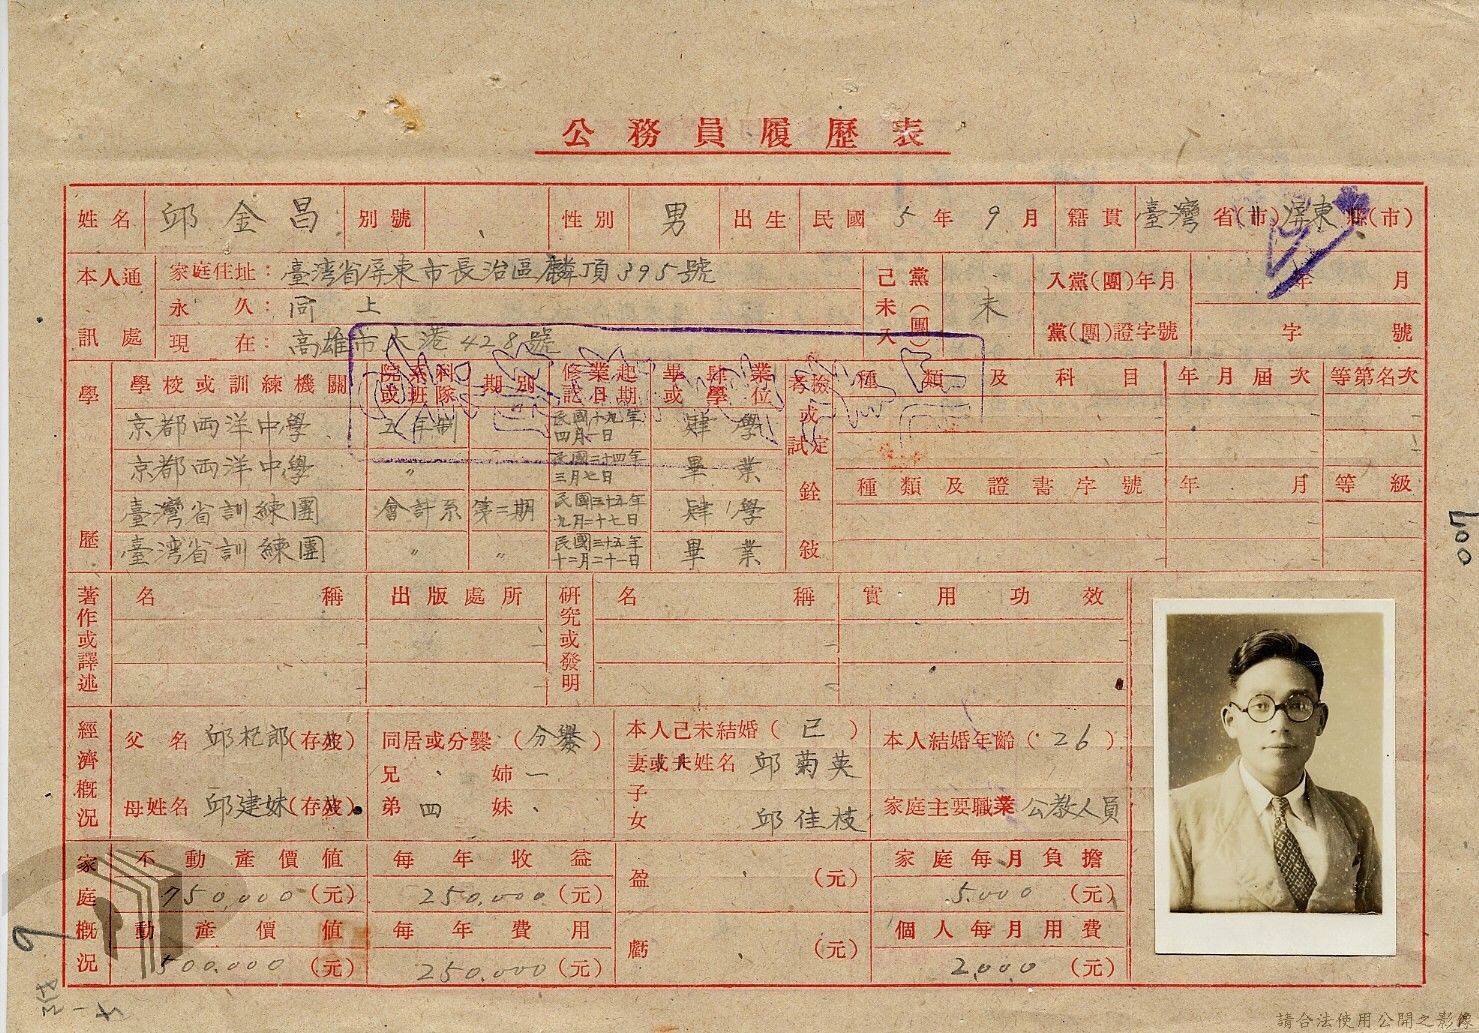 公務員履歷表
姓名 邱金昌 別號 性別 男 出生 民國 5 年 9 月 籍貫 臺灣 省(市) 屏東 縣(市)
本人通訊處 家庭住址：臺灣省屏東市長治區麟頂395號
永久：同上
現在：高雄市大港428號
己未入黨(團) 未 入黨(團)年月 年 月
黨(團)證字號 字 號
學歷 學校或訓練機關 院系科或班隊 期別 修業起訖日期 畢肄業或學位 考試或檢定 種類及科目 年月屆次 等第名次
京都両洋中學 五年制 民國十九年四月一日 肄學
京都両洋中學 〃 民國二十四年三月七日 畢業
銓敍 種類及證書字號 年 月 等級
臺灣省訓練團 會計系 第二期 民國三十五年九月二十七日 肄學
臺灣省訓練團 〃 〃 民國三十五年十二月二十一日 畢業
著作或譯述 名稱 出版處所 研究或發明 名稱 實用功效
經濟概況 父名 邱杞郎(存歿) 同居或分爨(分爨) 本人己未結婚(已) 本人結婚年齡(26)
兄 姉 一 妻或夫姓名 邱菊英
母姓名 邱建妹(存歿) 弟 四 妹 子女 邱佳枝 家庭主要職業 公教人員
家庭概況 不動產價值 每年收益 盈 (元) 家庭每月負擔
750,000(元) 250,000(元) 5,000(元)
動產價值 每年費用 虧 (元) 個人每月用費
500,000(元) 250,000(元) 2,000(元)
007
9
請合法使用公開之影像